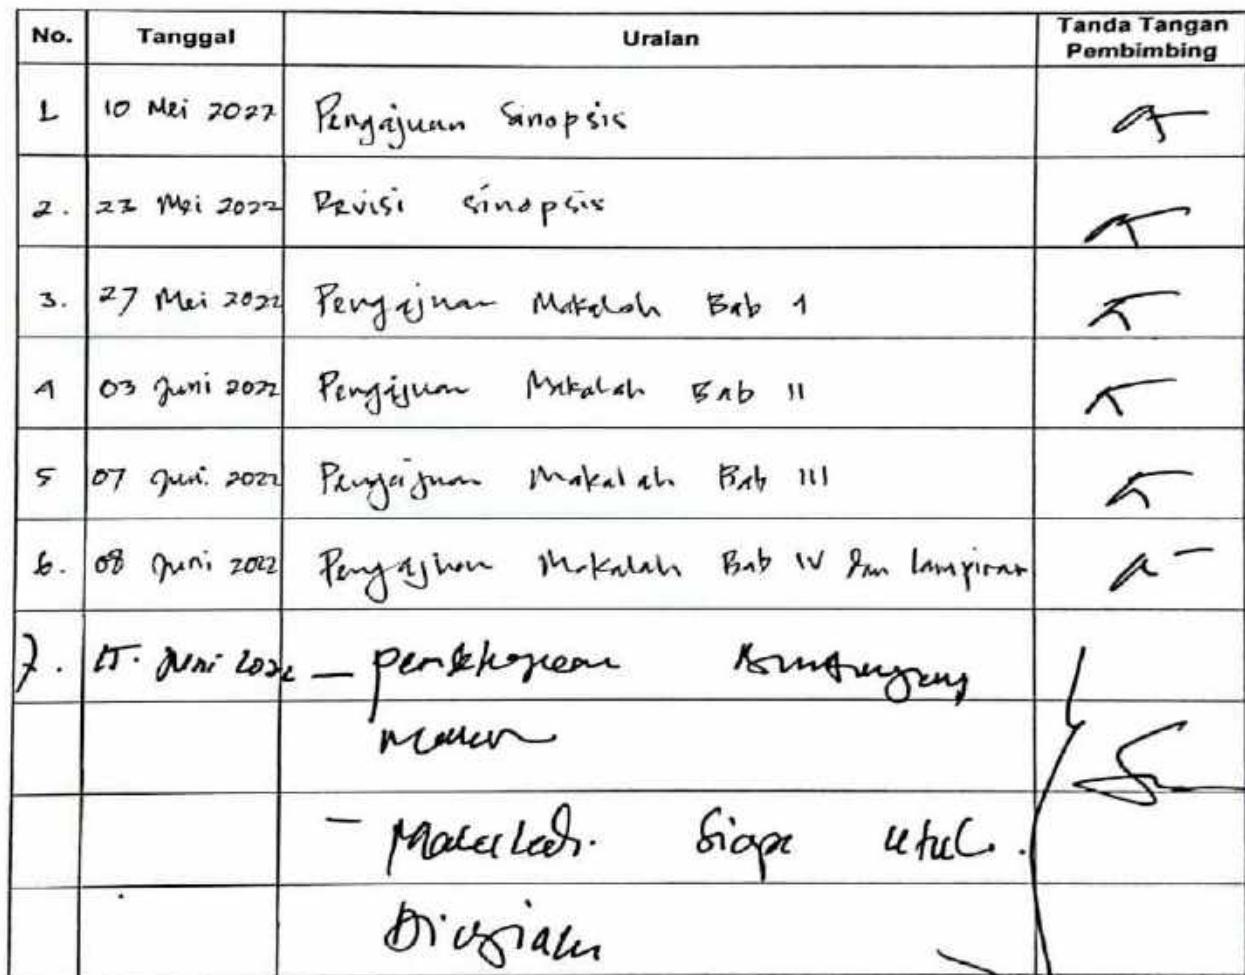 No. Tanggal Uraian Tanda Tangan Pembimbing
1 10 Mei 2022 Pengajuan Sinopsis
2. 23 Mei 2022 Revisi Sinopsis
3. 27 Mei 2022 Pengajuan Makalah Bab 1
4 03 Juni 2022 Pengajuan Makalah Bab II
5 07 Juni 2022 Pengajuan Makalah Bab III
6. 08 Juni 2022 Pengajuan Makalah Bab IV dan lampiran
7. 15. Juni 2022 –
- Makalah. Siap utuk.
Diujiakn